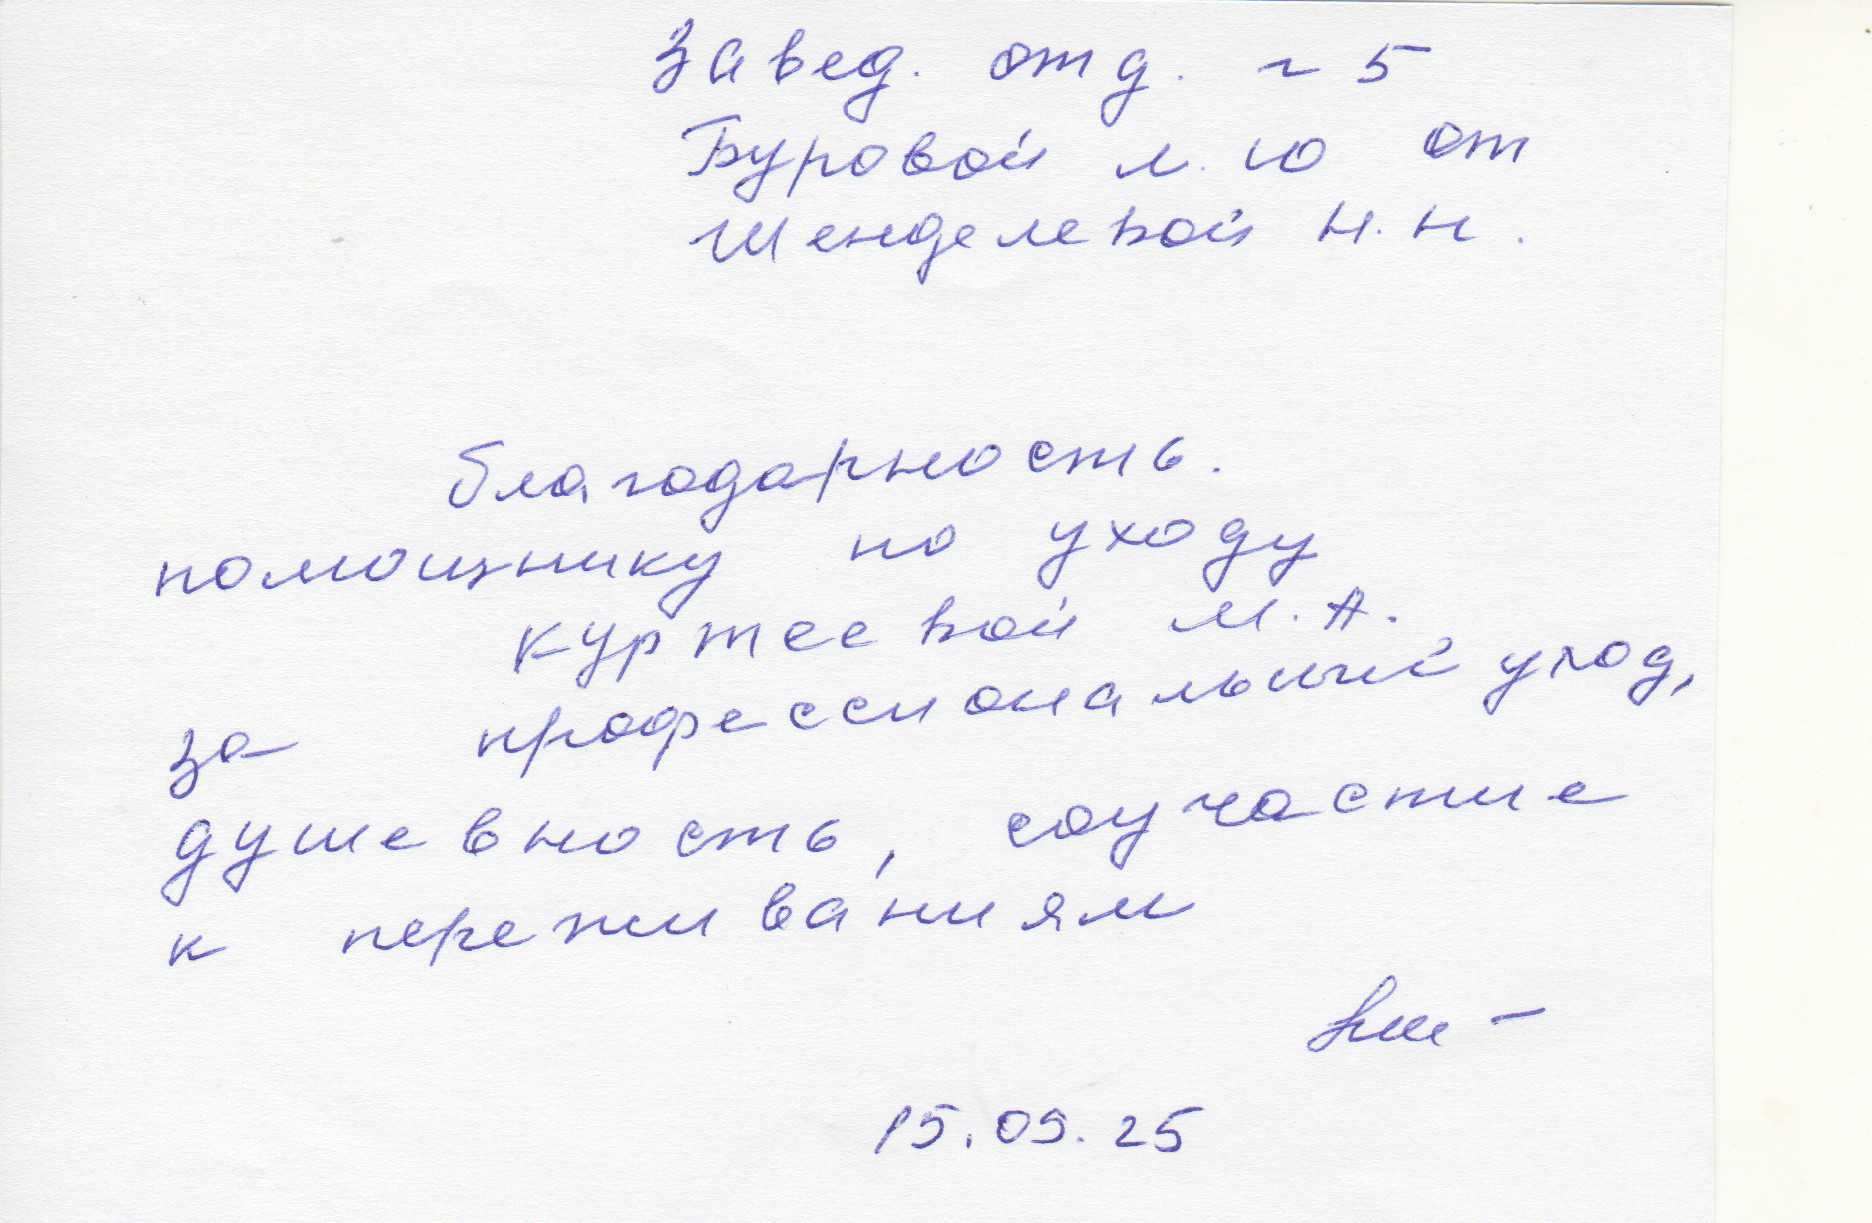 Завед. отд. ~ 5
Буровой Л. Ю от
Шенделевой Н. Н.
Благодарность.
помощнику по уходу
Куртеевой М. А.
за профессиональный уход,
душевность, соучастие
к переживаниям
15.09.25